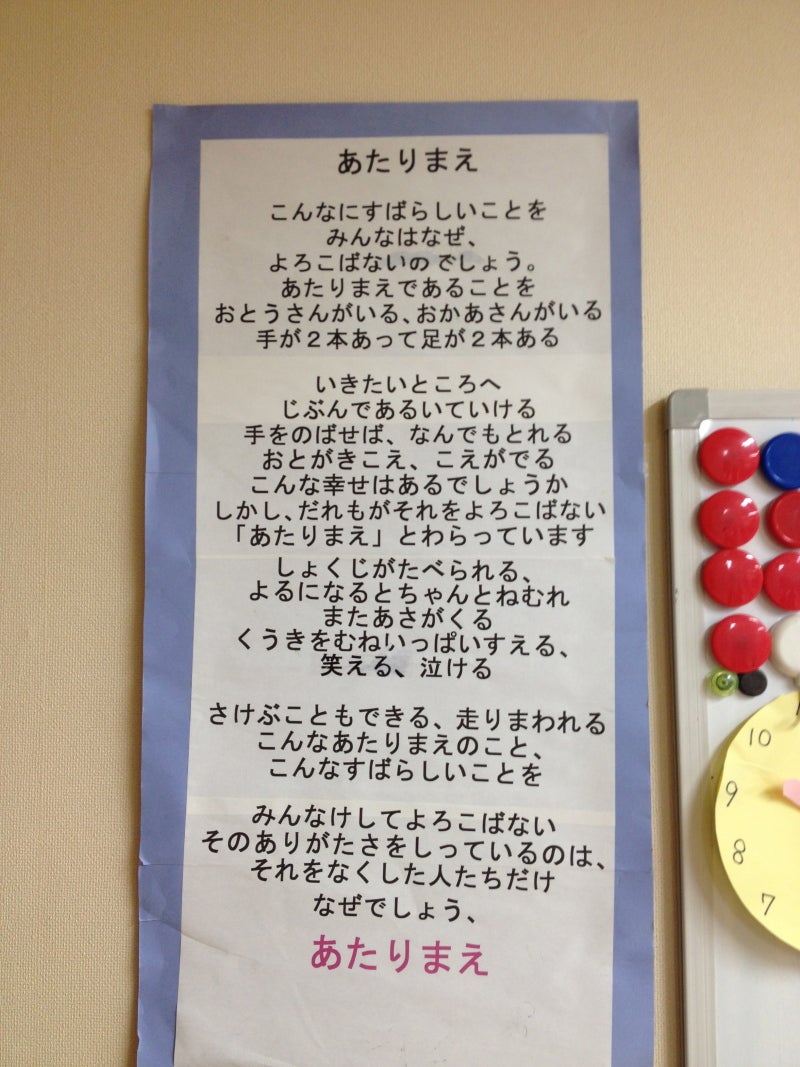 あたりまえ
こんなにすばらしいことを
みんなはなぜ、
よろこばないのでしょう。
あたりまえであることを
おとうさんがいる、おかあさんがいる
手が２本あって足が２本ある
いきたいところへ
じぶんであるいていける
手をのばせば、なんでもとれる
おとがきこえ、こえがでる
こんな幸せはあるでしょうか
しかし、だれもがそれをよろこばない
「あたりまえ」とわらっています
しょくじがたべられる、
よるになるとちゃんとねむれ
またあさがくる
くうきをむねいっぱいすえる、
笑える、泣ける
さけぶこともできる、走りまわれる
こんなあたりまえのこと、
こんなすばらしいことを
みんなけしてよろこばない
そのありがたさをしっているのは、
それをなくした人たちだけ
なぜでしょう、
あたりまえ
10
9
8
7